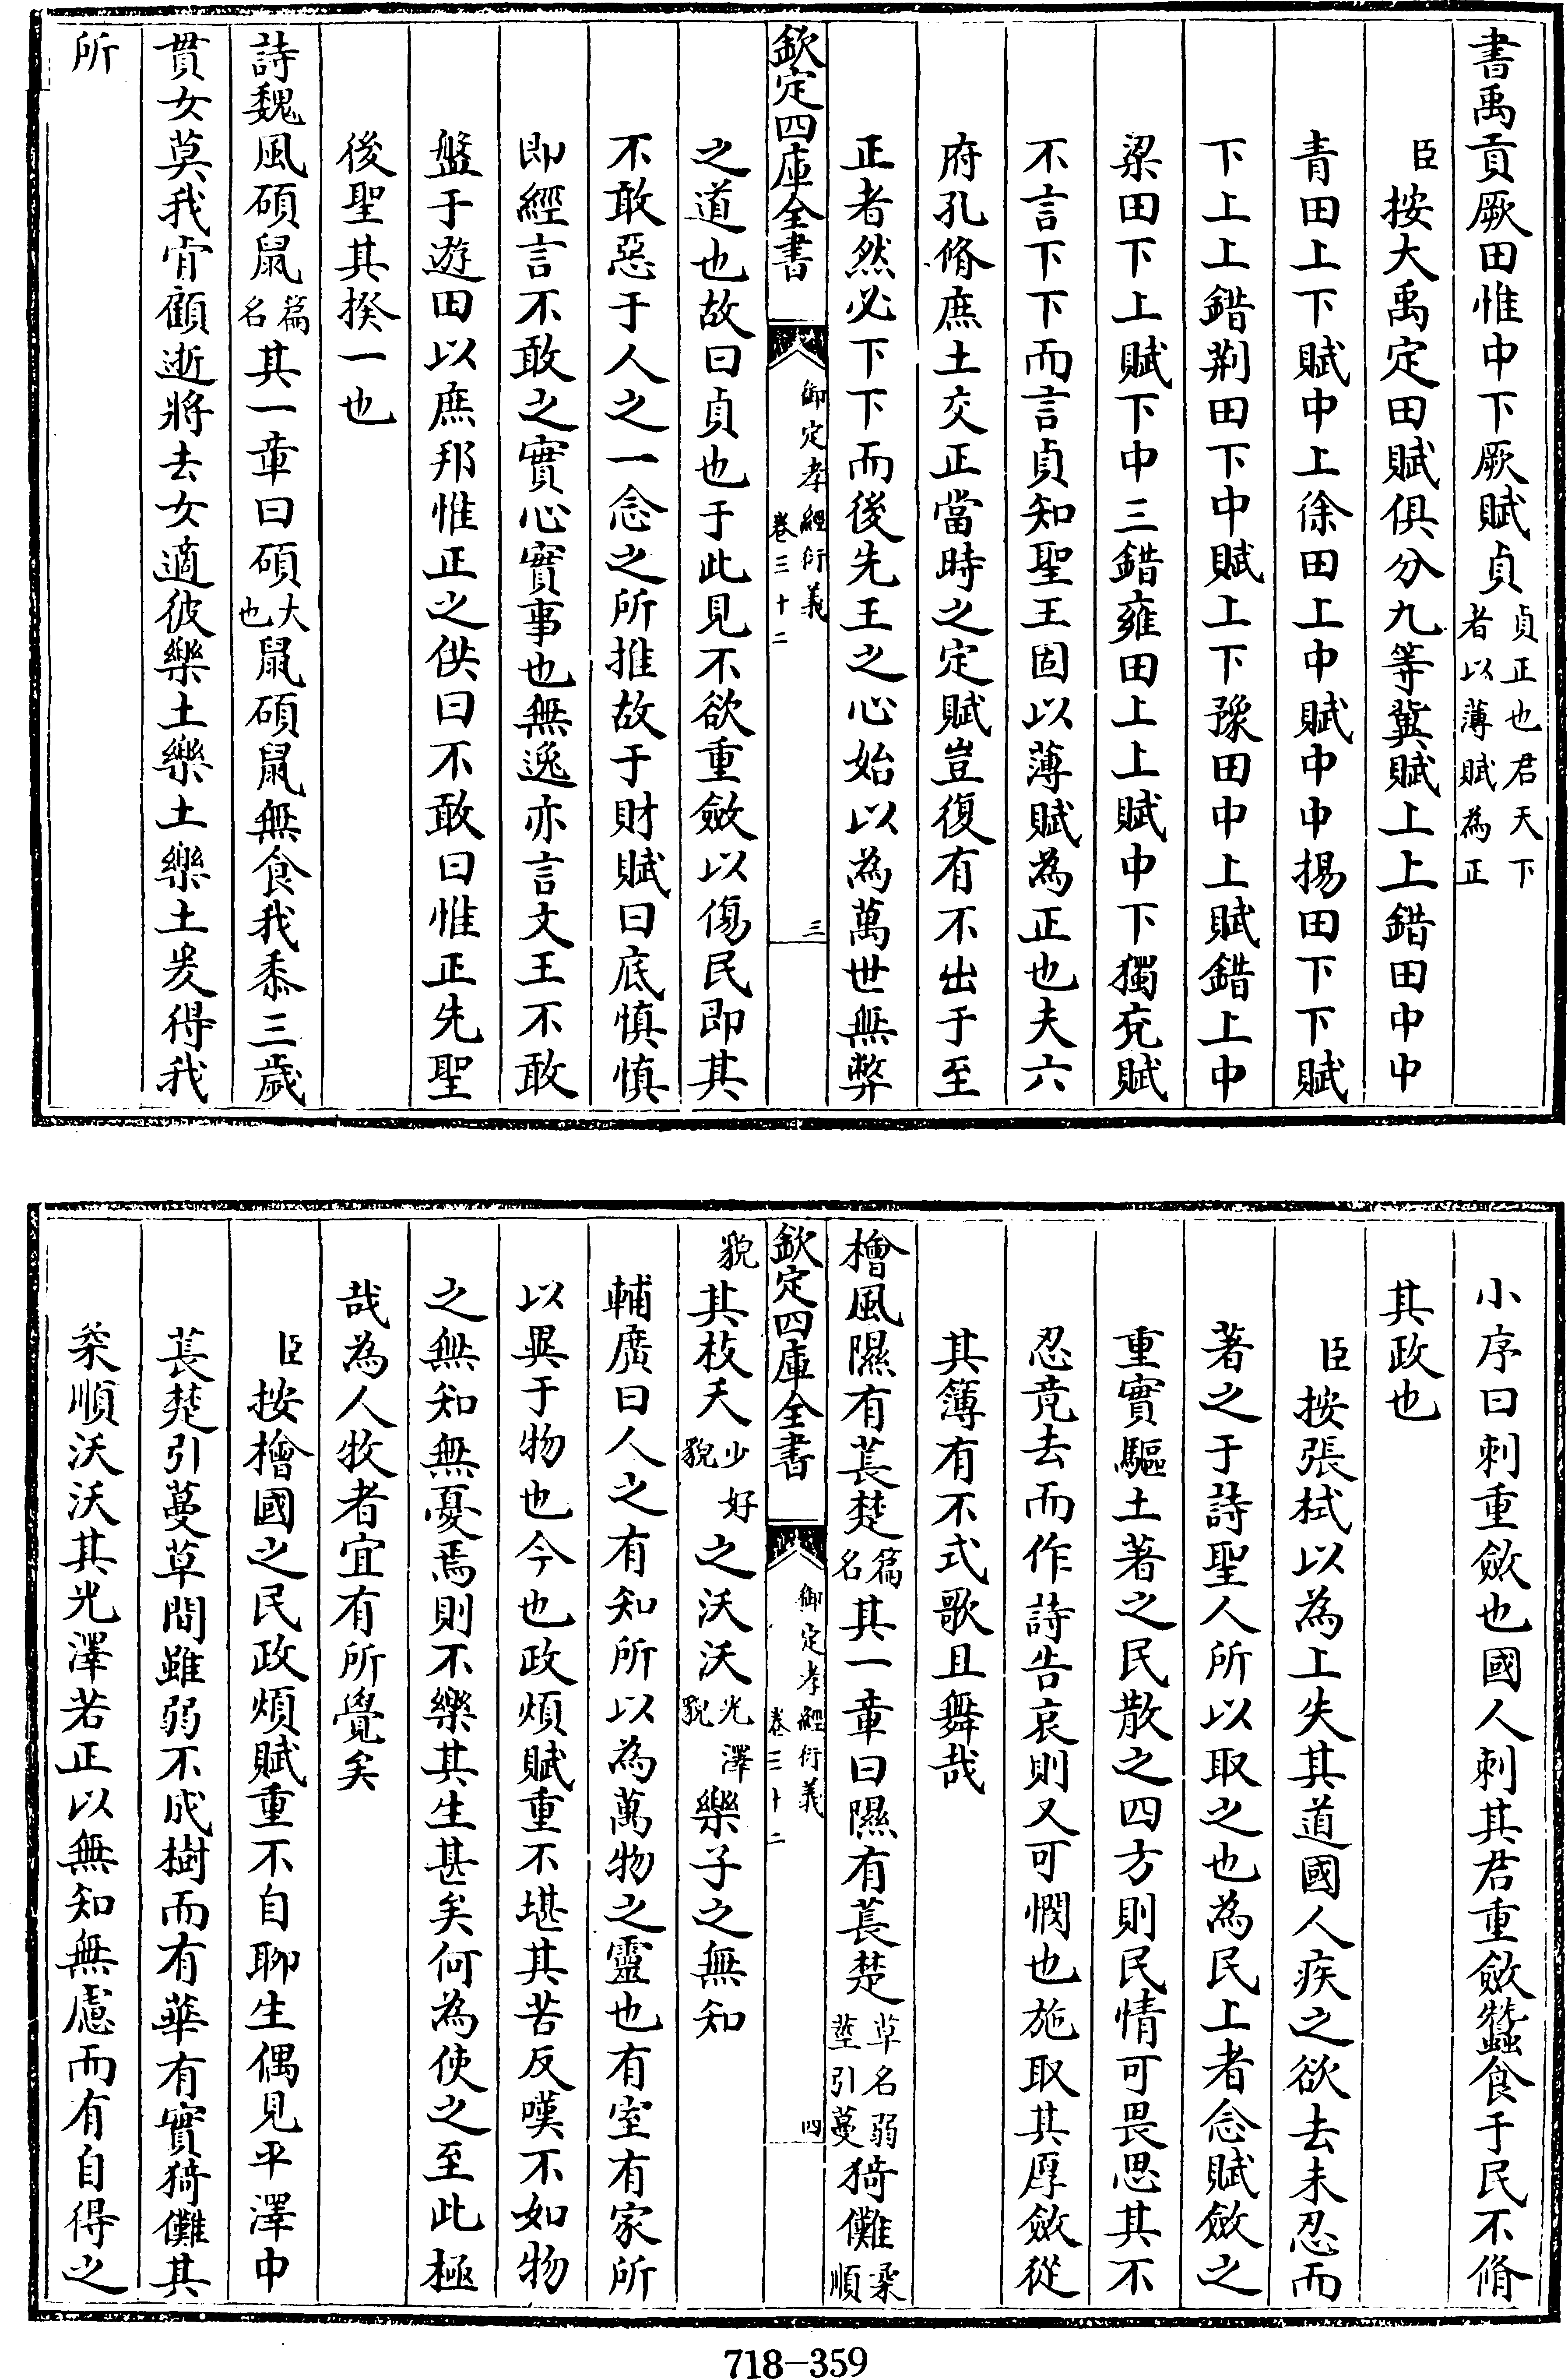 書禹貢厥田惟中下厥賦貞貞正也君天下者以薄賦為正
臣按大禹定田賦俱分九等冀賦上上錯田中中
青田上下賦中上徐田上中賦中中揚田下下賦
下上上錯荆田下中賦上下豫田中上賦錯上中
梁田下上賦下中三錯雍田上上賦中下獨兖賦
不言下下而言貞知聖王固以薄賦為正也夫六
府孔脩庶土交正當時之定賦豈復有不出于至
正者然必下下而後先王之心始以為萬世無弊
欽定四庫全書 御定孝經衍義 卷三十二 三
之道也故曰貞也于此見不欲重斂以傷民即其
不敢惡于人之一念之所推故于財賦曰底慎慎
即經言不敢之實心實事也無逸亦言文王不敢
盤于遊田以庶邦惟正之供曰不敢曰惟正先聖
後聖其揆一也
詩魏風碩鼠篇名其一章曰碩大也鼠碩鼠無食我黍三歲
貫女莫我肯顧逝將去女適彼樂土樂土樂土爰得我
所
小序曰刺重斂也國人刺其君重斂蠶食于民不脩
其政也
臣按張栻以為上失其道國人疾之欲去未忍而
著之于詩聖人所以取之也為民上者念賦斂之
重實驅土著之民散之四方則民情可畏思其不
忍竟去而作詩告哀則又可憫也施取其厚斂從
其簿有不式歌且舞哉
檜風隰有萇楚篇名其一章曰隰有萇楚草名弱莖引蔓猗儺柔順
欽定四庫全書 御定孝經衍義 卷三十二 四
貌其枝夭少好貌之沃沃光澤貌樂子之無知
輔廣曰人之有知所以為萬物之靈也有室有家所
以異于物也今也政煩賦重不堪其苦反嘆不如物
之無知無憂焉則不樂其生甚矣何為使之至此極
哉為人牧者宜有所覺矣
臣按檜國之民政煩賦重不自聊生偶見平澤中
萇楚引蔓草間雖弱不成樹而有華有實猗儺其
柔順沃沃其光澤若正以無知無慮而有自得之
718-359